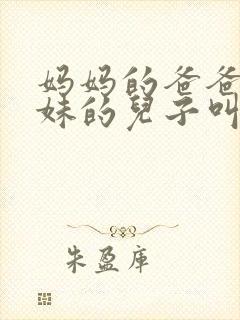 妈妈的爸爸
妹的兒子叫
朱盈库